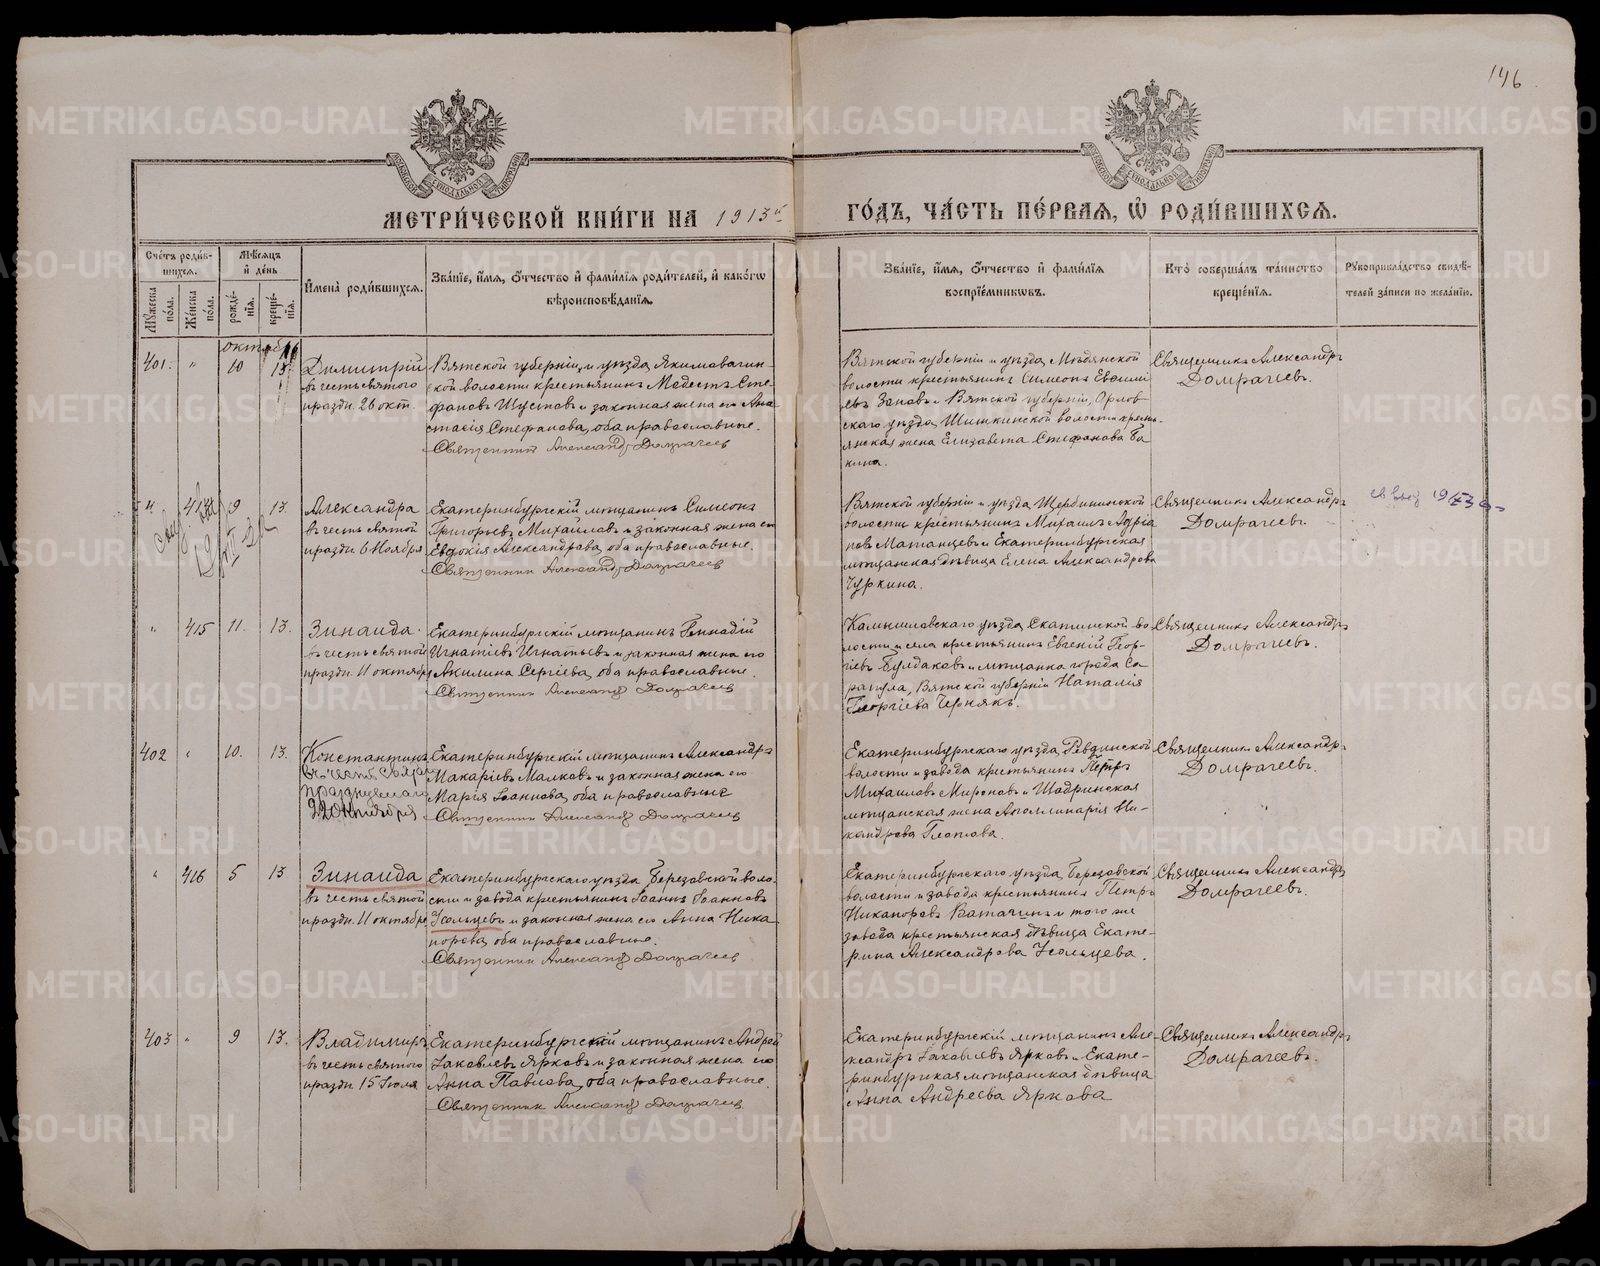 146
МЕТРИ́ЧЕСКОЙ КНИ́ГИ НА 1913й ГО́ДЪ, ЧА́СТЬ ПЕ́РВАЯ, Ѡ҆ РОДИ́ВШИХСЯ.
Сче́тъ роди́вшихся.
Мѣ́сяцъ и҆ де́нь
И҆мена̀ роди́вшихся.
Зва́нїе, и҆́мя, ѻ҆́тчество и҆ фами́лїя роди́телей, и҆ како́гѡ
вѣроисповѣ́данїя.
Зва́нїе, и҆́мя, ѻ҆́тчество и҆ фами́лїя
воспрїе́мникѡвъ.
Кто̀ соверша́лъ та́инство
креще́нїя.
Рꙋкоприкла́дство свидѣ́телей за́писи по жела́нїю.
Мꙋ́жеска по́ла.
Же́нска по́ла.
рожде́нїя.
креще́нїя.
октябрь
401. " 10 13.
Димитрій
въ честь святого
праздн. 26 окт.
Вятской губерніи и уѣзда,
кой волости крестьянинъ Модестъ Сте-
фановъ Шустовъ и законная жена его Ана-
стасія Стефанова, оба православные.
Священникъ Александръ Домрачеевъ
Вятской губерніи и уѣзда, Мѣдянской
волости крестьянинъ Симеонъ
и Вятской губерніи, Орлов-
скаго уѣзда, Шишкинской волости кресть-
янская жена Елизавета Стефанова Ба-
кина.
Священникъ Александръ
Домрачеевъ.
" 9 13.
Александра
въ честь святой
праздн. 6 Ноября
Екатеринбургскій мѣщанинъ Симеонъ
Григорьевъ Михайловъ и законная жена его
Евдокія Александрова, оба православные.
Священникъ Александръ Домрачеевъ
Вятской губерніи и уѣзда, Щербининской
волости крестьянинъ Михаилъ Адріа
новъ Матанцевъ и Екатеринбургская
мѣщанская дѣвица Елена Александрова
Чуркина.
Священникъ Александръ
Домрачеевъ.
" 415 11. 13.
Зинаида.
въ честь святой
праздн. 11 октября
Екатеринбургскій мѣщанинъ Геннадій
Игнатіевъ Игнатьевъ и законная жена его
Акилина Сергіева, оба православные.
Священникъ Александръ Домрачеевъ
Камышловскаго уѣзда, Скатинской во-
лости и села крестьянинъ Евгеній Геор-
гіевъ Булдаковъ и мѣщанка города Са-
рапула, Вятской губерніи Наталія
Георгіева Чернякъ.
Священникъ Александръ
Домрачеевъ.
402 " 10. 13.
Константинъ
въ честь святого
празднуемаго
22 октября
Екатеринбургскій мѣщанинъ Александръ
Макаріевъ Малковъ и законная жена его
Марія Іоаннова, оба православные
Священникъ Александръ Домрачеевъ
Екатеринбургскаго уѣзда, Ревдинской
волости и завода крестьянинъ Петръ
Михаиловъ Мироновъ и Шадринская
мѣщанская жена Аполлинарія Ни-
кандрова Глотова.
Священникъ Александръ
Домрачеевъ.
" 416 5 13
Зинаида
въ честь святой
праздн. 11 октября
Екатеринбургскаго уѣзда, Березовской воло-
сти и завода крестьянинъ Іоаннъ Іоанновъ
Усольцевъ и законная жена его Анна Ника
норова, оба православные.
Священникъ Александръ Домрачеевъ
Екатеринбургскаго уѣзда, Березовской
волости и завода крестьянинъ Петръ
Никаноровъ Ватачинъ и того же
завода крестьянская дѣвица Екате-
рина Александрова Усольцева.
Священникъ Александръ
Домрачеевъ.
403 " 9 13.
Владимиръ
въ честь святого
праздн. 15 Іюля
Екатеринбургскій мѣщанинъ Андрей
Іаковлевъ Ярковъ и законная жена его
Анна Павлова, оба православные.
Священникъ Александръ Домрачеевъ
Екатеринбургскій мѣщанинъ Але-
ксандръ Іаковлевъ Ярковъ и Екате-
ринбургская мѣщанская дѣвица
Анна Андреева Яркова
Священникъ Александръ
Домрачеевъ.
METRIKI.GASO-URAL.RU